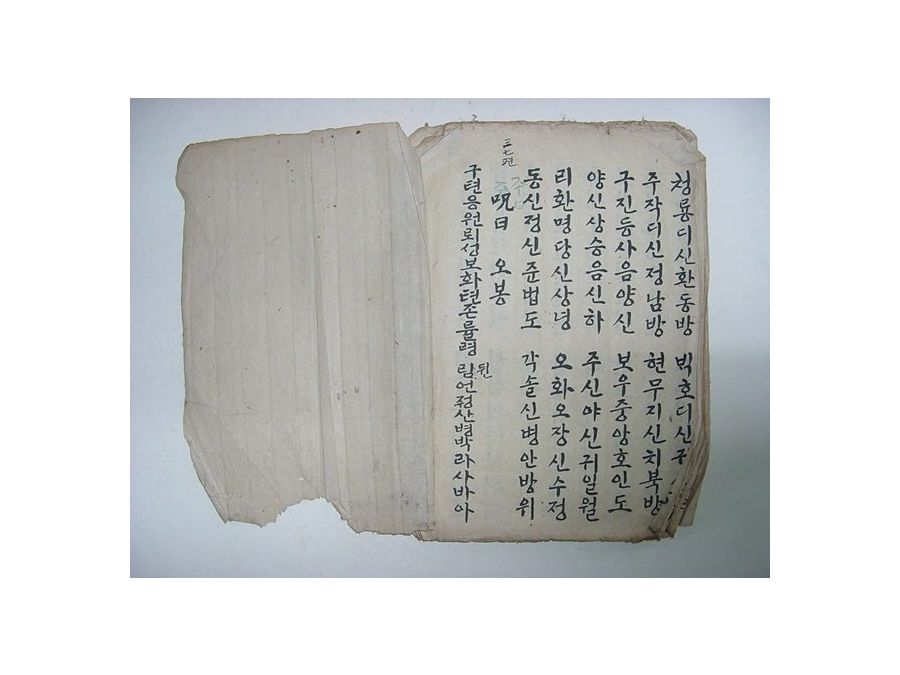 쳥룡디신환동방 박호디신귀
주작디신졍남방 현무지신치북방
구진등사음양신 보우중앙호인도
양신상승음신하 주신야신귀일월
리환명당신상녕 오화오장신수졍
동신졍신쥰법도 각솔신병안방위
呪曰 오봉
三七편
구텬응원뢰셩보화텬존률령 림언졍산병박라사바아
뒨